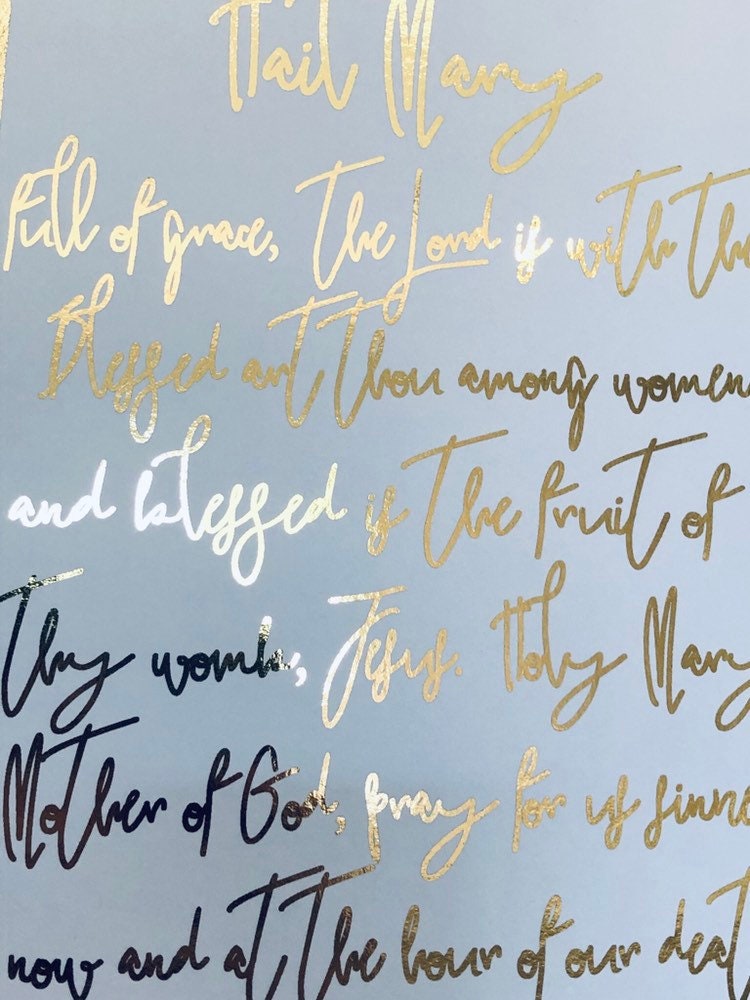 Hail Mary
Full of Grace, The Lord is with the
Blessed art Thou among women
and blessed is the fruit of
Thy womb, Jesus. Holy Mary
Mother of God, pray for us sinne
now and at the hour of our deat